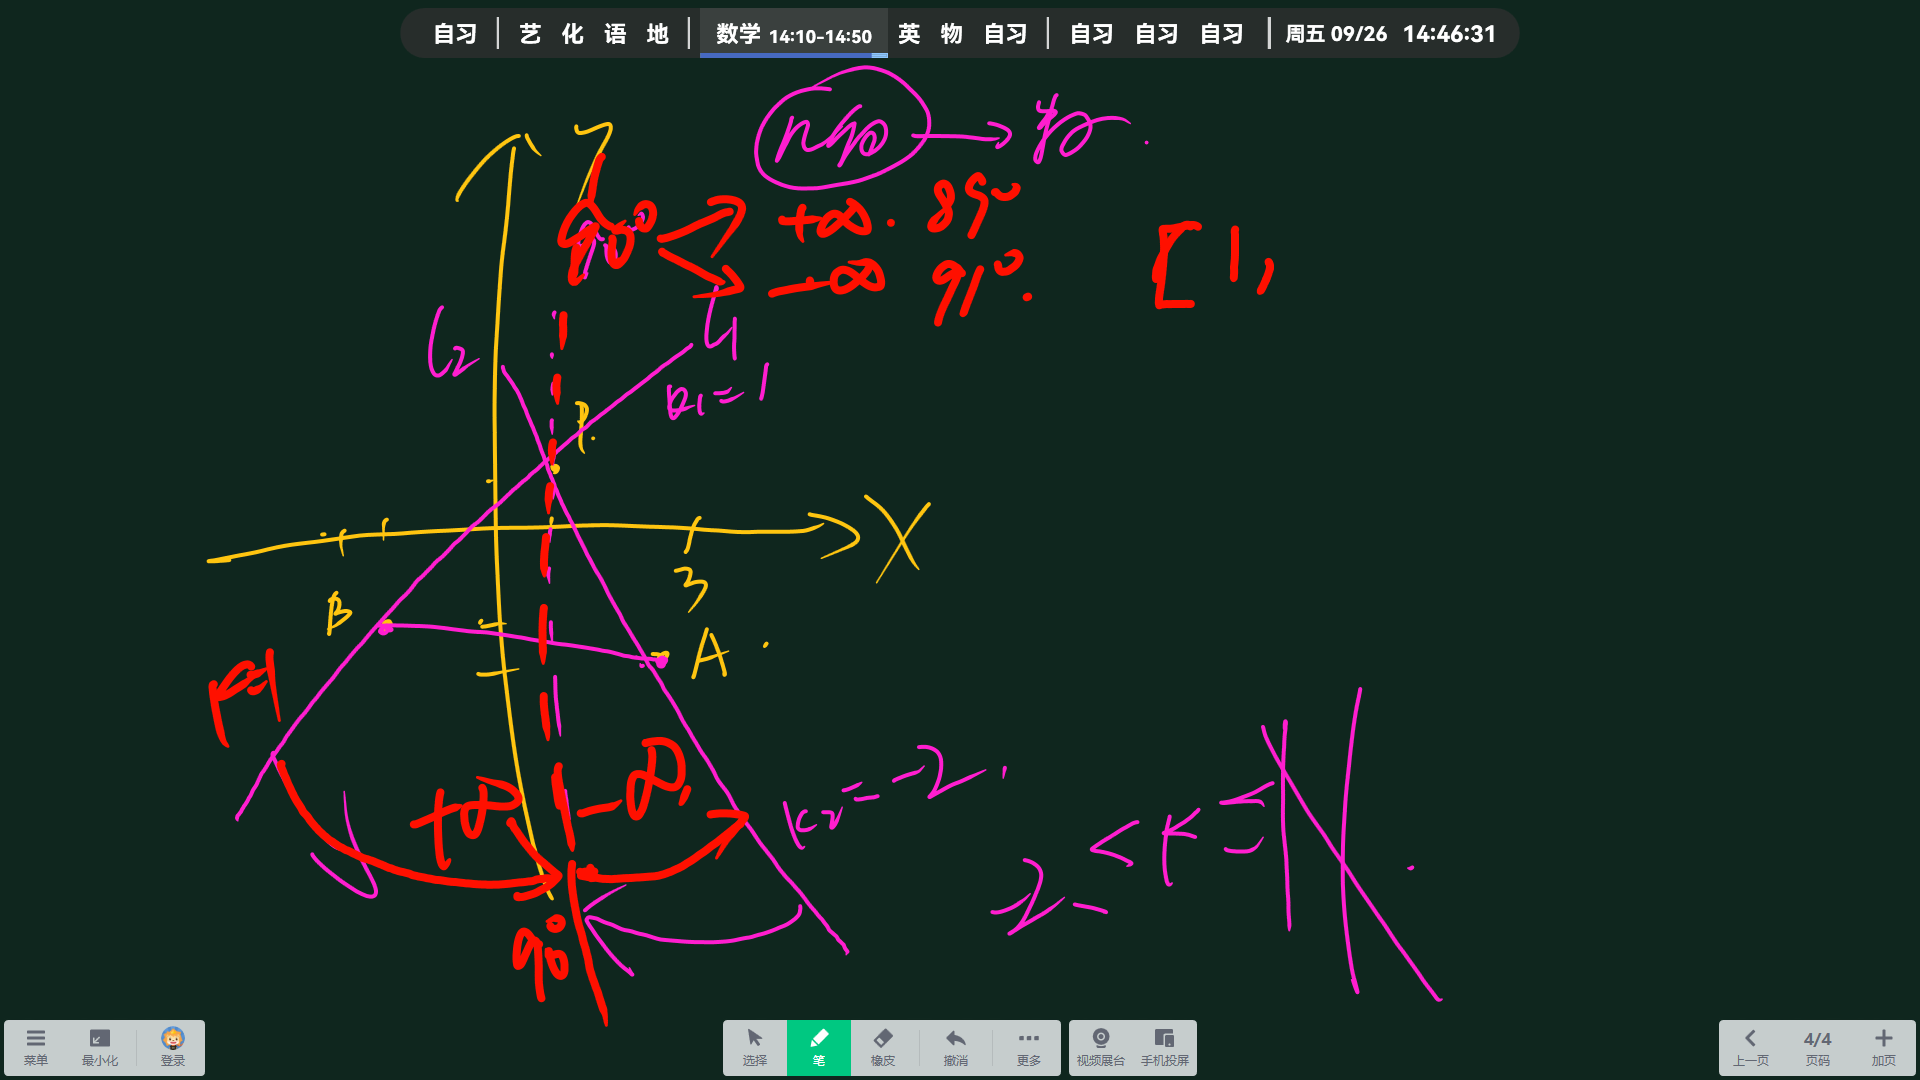 自习 | 艺 化 语 地 | 数学 14:10-14:50 英 物 自习 | 自习 自习 自习 | 周五 09/26 14:46:31
90° +∞. 89°
-∞ 91°.
[1,
l2
l1
k1=1
P.
X
3
B
A
k=1
+∞
-∞
k2=-2.
90°
菜单 最小化 登录 选择 笔 橡皮 撤消 更多 视频展台 手机投屏 上一页 4/4 页码 加页